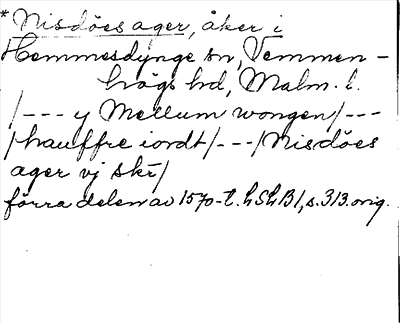 * Nisdöes ager, åker i
Hemmesdynge sn, Vemmen-
högs hd, Malm. l.
/--- y Mellum wongen/---
/hauffre iordt/---/Nisdöes
ager vj skr/
förra delen av 1570-t. LSLB1, s. 313. orig.